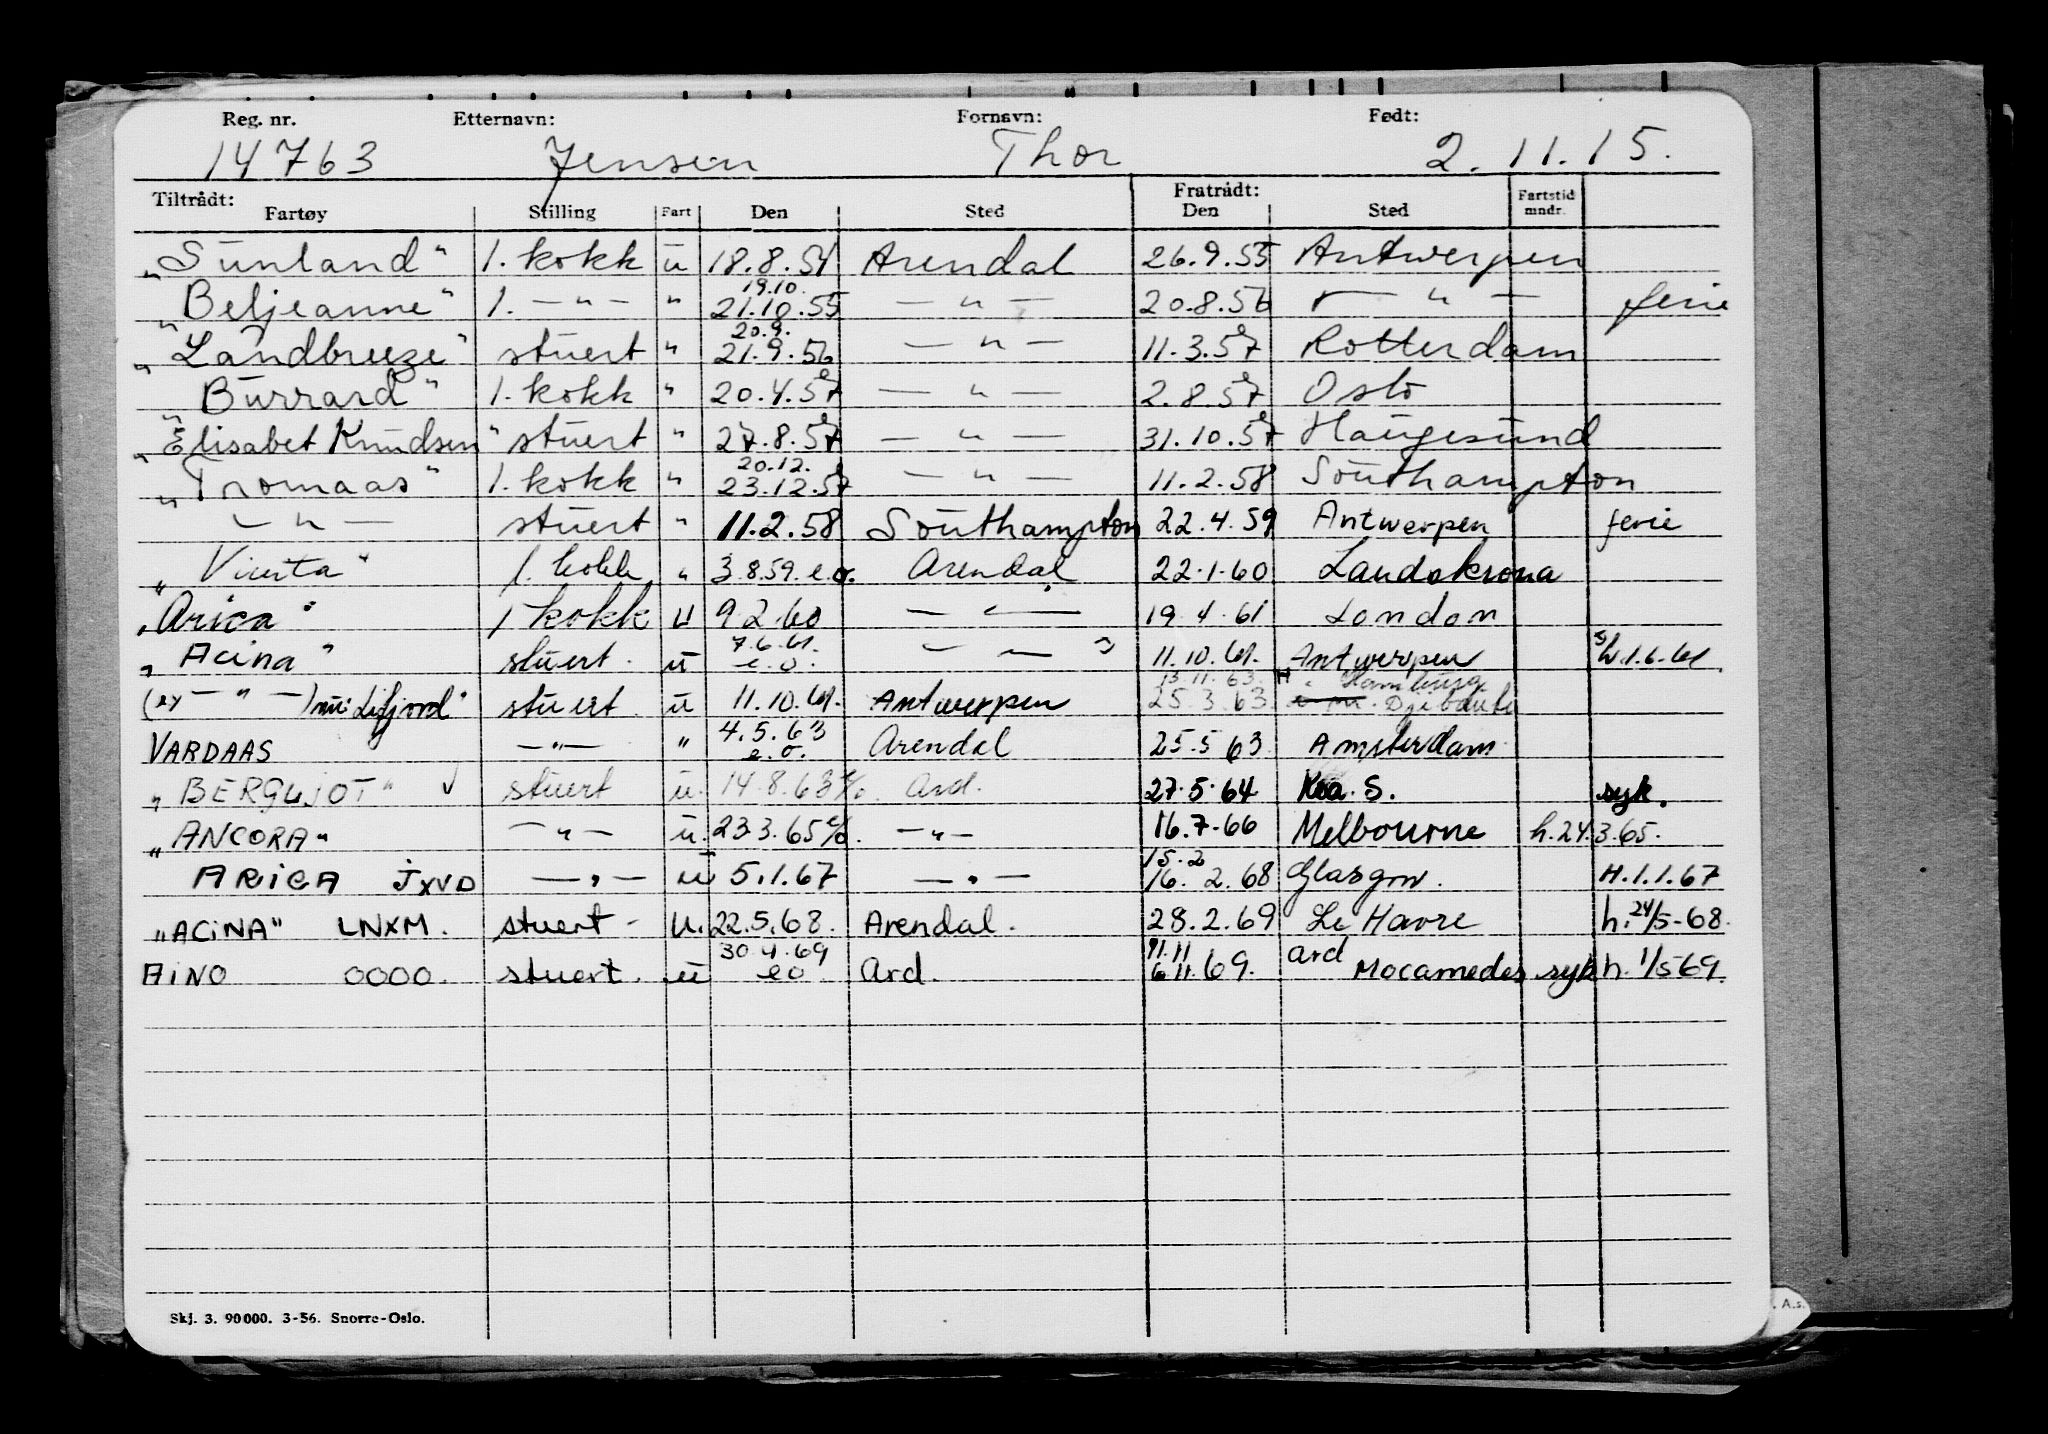 Reg. nr. Etternavn: Fornavn: Født:
14763 Jensen Thor 2.11.15.
Tiltrådt: Fratrådt:
Fartøy Stilling Fart Den Sted Den Sted Fartstid mndr.
"Sunland" 1. kokk u 18.8.54 Arendal 26.9.55 Antwerpen
19.10.
"Beljeanne" 1. — " — " 21.10.55 — " — 20.8.56 — " — ferie
20.9.
"Landbreeze" stuert " 21.9.56 — " — 11.3.57 Rotterdam
"Burrard" 1. kokk " 20.4.57 — " — 2.8.57 Oslo
"Elisabet Knudsen" stuert " 27.8.57 — " — 31.10.57 Haugesund
20.12.
"Tromaas" 1. kokk " 23.12.57 — " — 11.2.58 Southampton
— " — stuert " 11.2.58 Southampton 22.4.59 Antwerpen ferie
"Vivita" 1. kokk " 3.8.59. e.o. Arendal 22.1.60 Landskrona
"Arica" 1 kokk u 9 2.60 — " — 19.4.61 London
7.6.61.
"Acina" stuert. u e.o. — " — 11.10.61. Antwerpen h.1.6.61.
13.11.63. H " Hamburg
(ex — " —) nu: Lifjord" stuert u 11.10.61. Antwerpen 25.3.63 Djibouti
4.5.63
VARDAAS — " — " e.o. Arendal 25.5 63. Amsterdam
"BERGLJOT" √ stuert u. 14.8.63 e/o. Ard. 27.5.64 Kra. S. syk.
"ANCORA" — " — u. 23.3.65 e/o. — " — 16.7.66 Melbourne h.24.3.65.
15.2
ARICA JXVD — " — u 5.1.67 — " — 16.2.68 Glasgow. H.1.1.67
"ACINA" LNXM. stuert - u. 22.5.68. Arendal. 28.2.69 Le Havre h. 24/5-68.
30.4.69 11.11 ard
AINO OOOO. stuert. u eo Ard. 6.11.69. Mocamedes syk h. 1/5 69.
Skj. 3. 90000. 3-56. Snorre-Oslo.
. A.s.